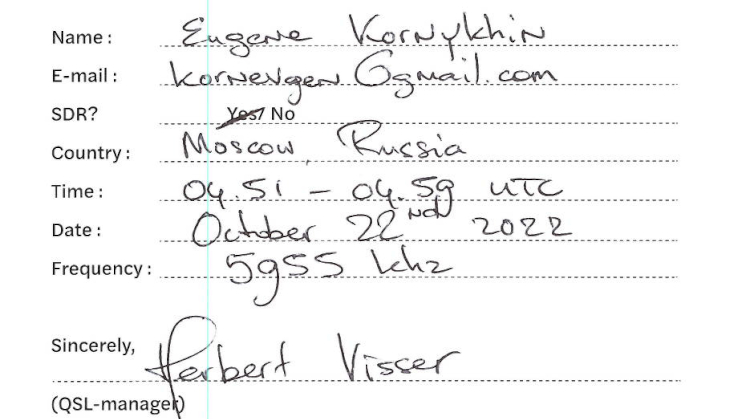 Name : Eugene Kornykhin
E-mail : kornevgen@gmail.com
SDR? Yes/ No
Country : Moscow, Russia
Time : 04.51 – 04.59 UTC
Date : October 22nd 2022
Frequency : 5955 khz
Sincerely,
Herbert Visser
(QSL-manager)